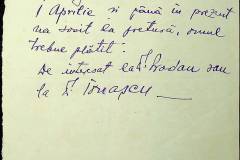 1 Aprilie și până în prezent
nu sosit la pretură, omul
trebue plătit.
De interesat la
la Tomașcu